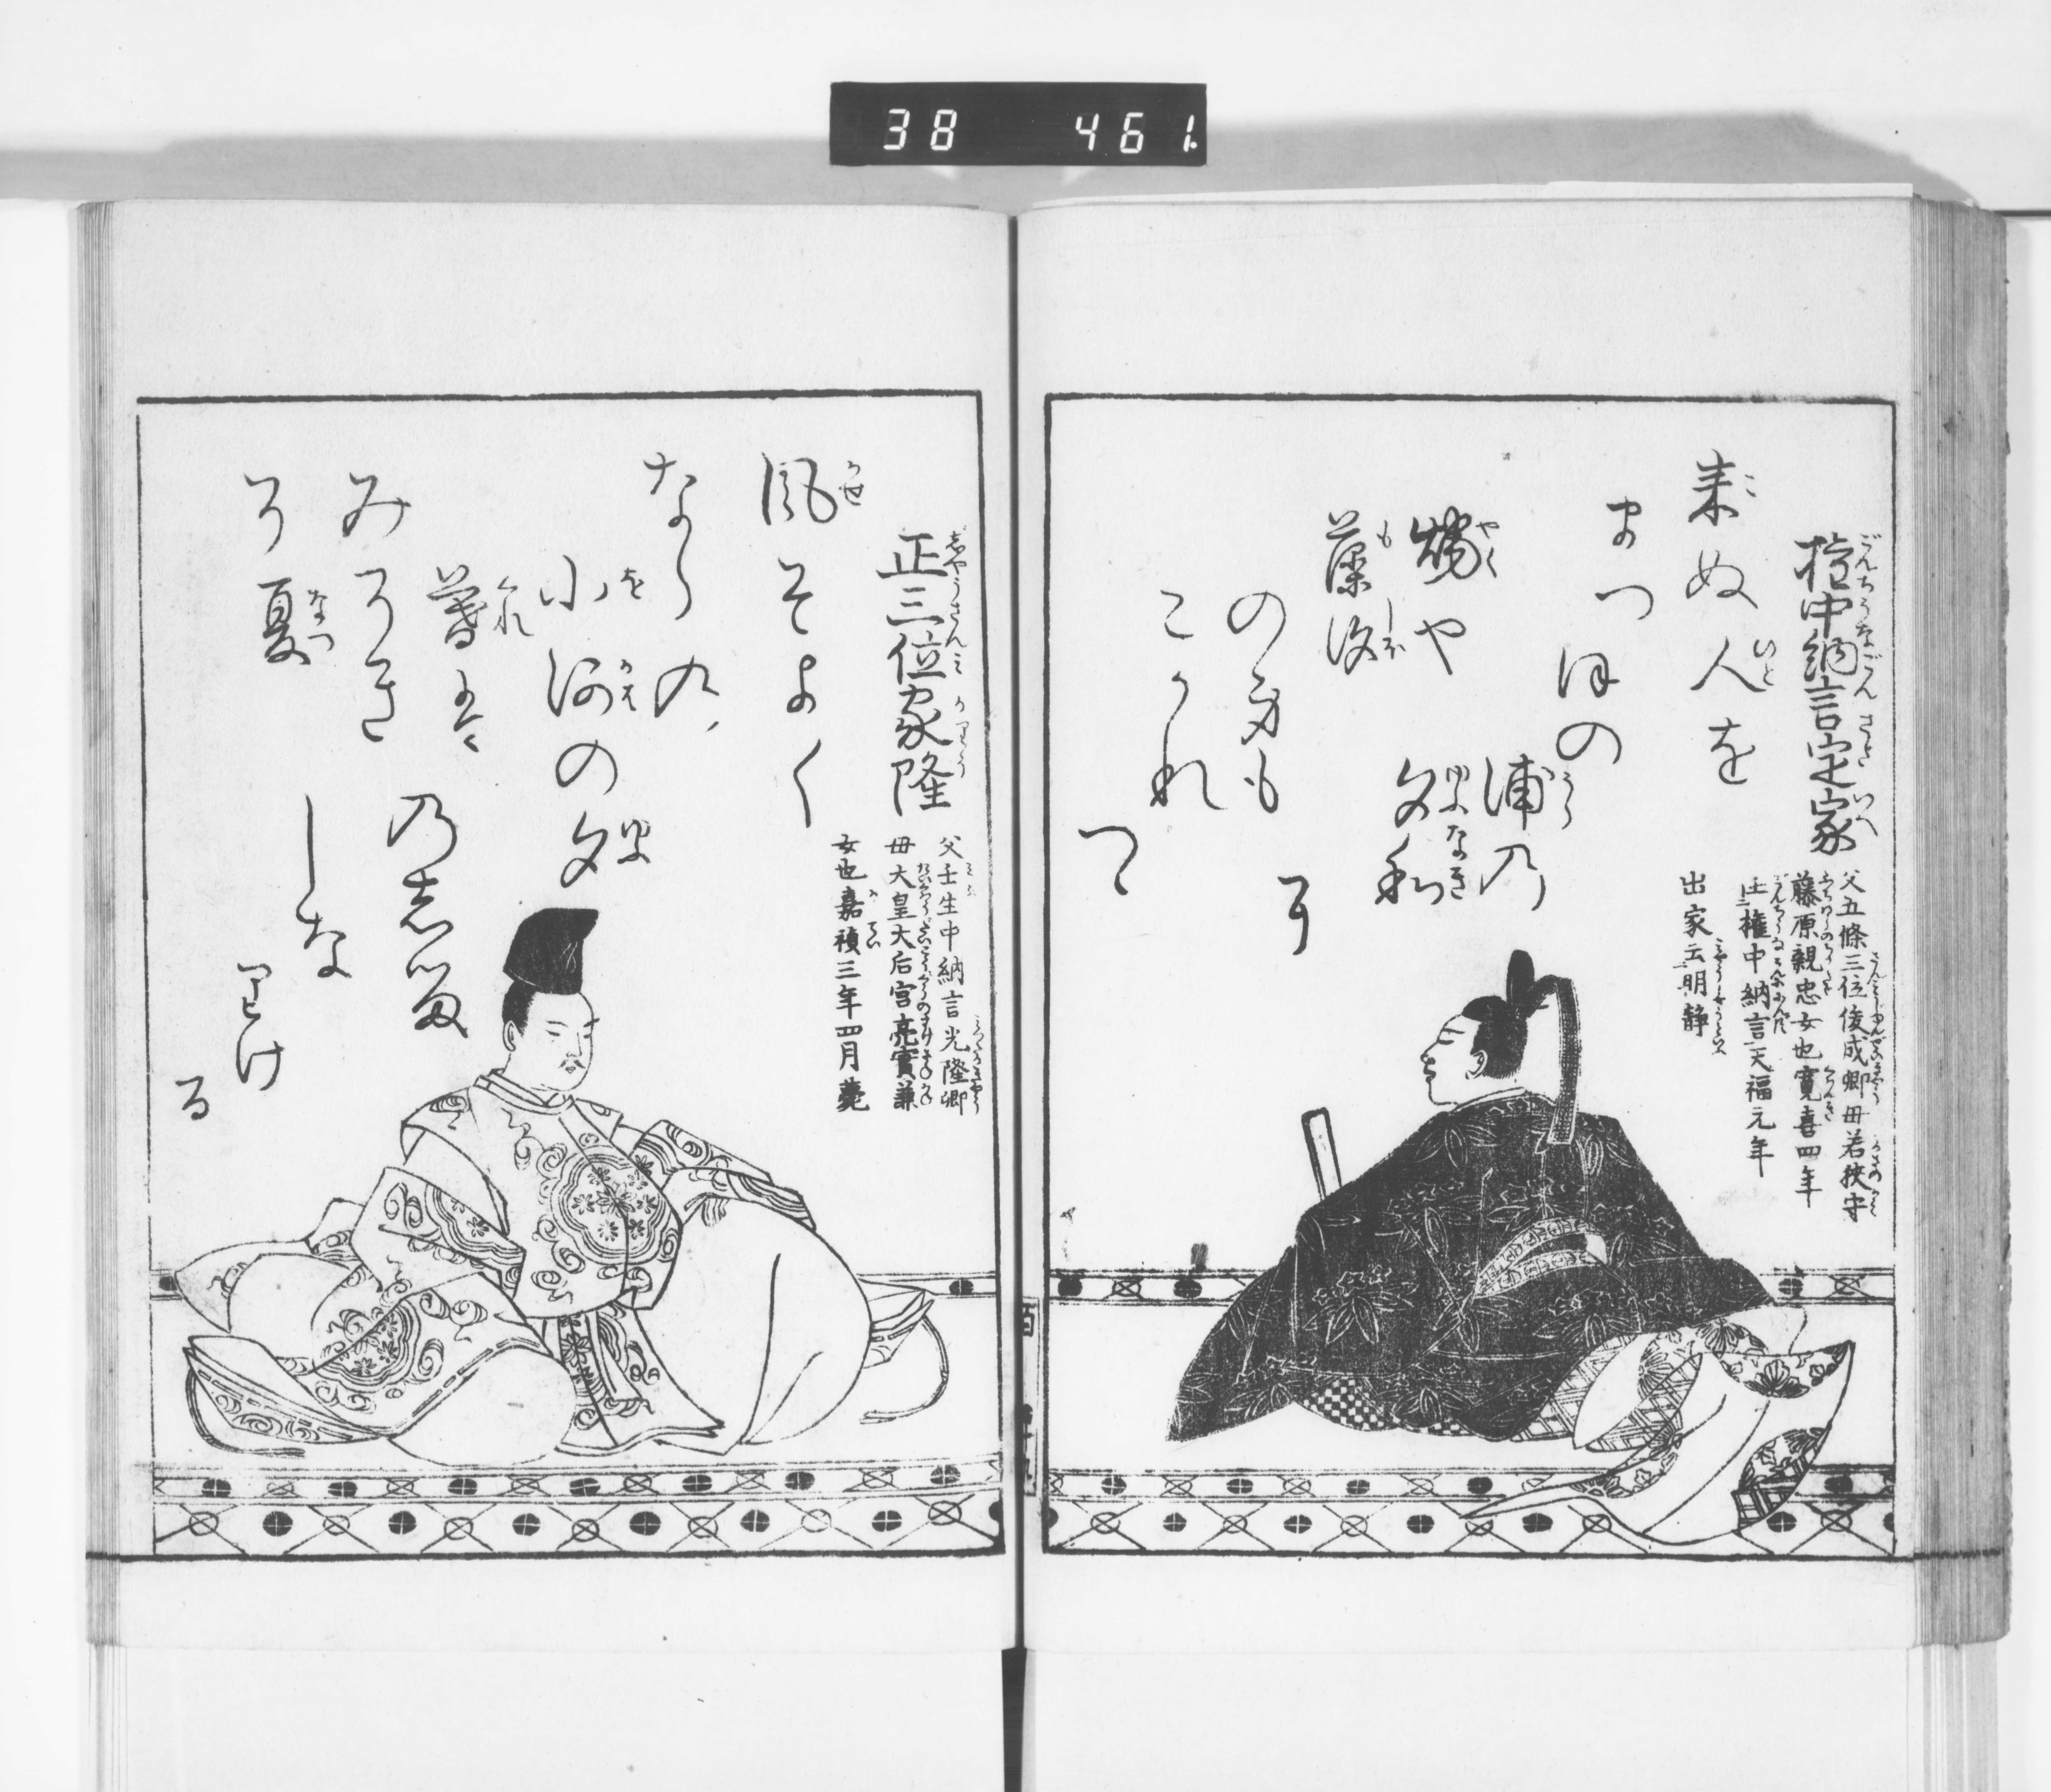 38 461
権中納言定家
父五條三位俊成卿母若狭守
藤原親忠女也寛喜四年
任権中納言天福元年
出家云明静
来ぬ人を
まつほの
浦乃
夕和
焼や
藻汐
の身も
こかれ
つゝ
正三位家隆
父壬生中納言光隆卿
母大皇大后宮亮實兼
女也嘉禎三年四月薨
風そよく
ならの
小河の夕
暮は
みそき
そ夏
乃志る
しな
りけ
る